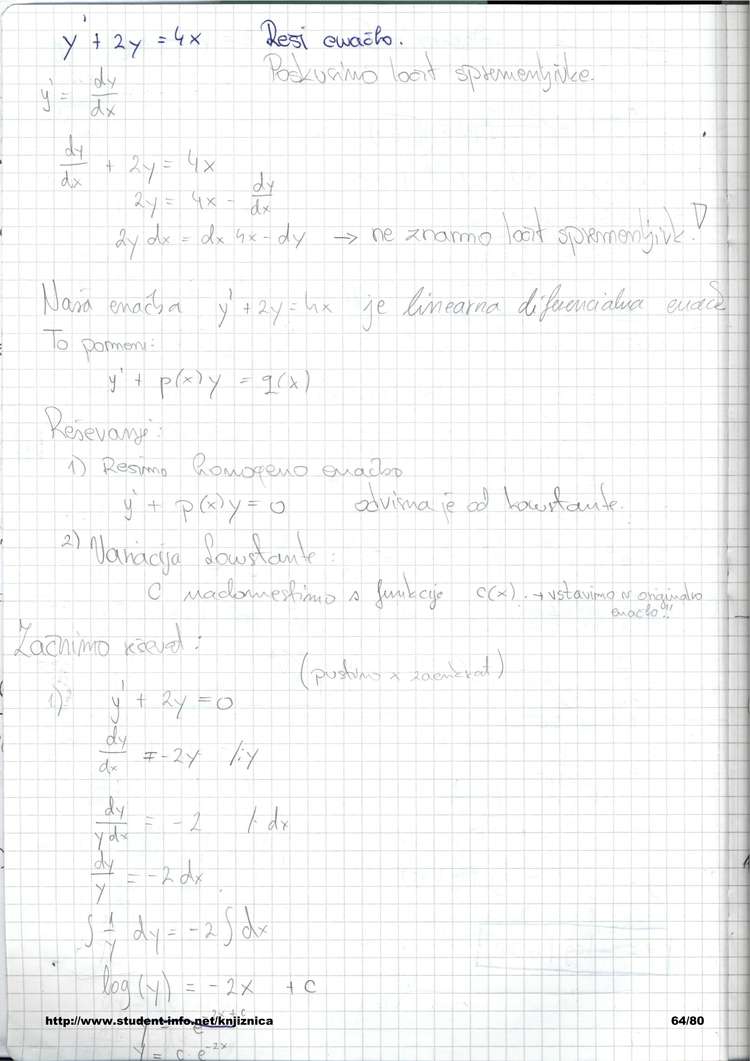 y' + 2y = 4x   Reši enačbo.
Poskusimo ločit spremenljivke.
y' = dy/dx
dy/dx + 2y = 4x
2y = 4x - dy/dx
2y dx = dx 4x - dy → ne znamo ločit spremenljivk!
Naša enačba y' + 2y = 4x je linearna diferencialna enačb
To pomeni:
y' + p(x)y = q(x)
Reševanje:
1) Rešimo homogeno enačbo
y' + p(x)y = 0   odvisna je od konstante.
2) Variacija konstante:
C nadomestimo s funkcijo c(x). → vstavimo v originalno
enačbo!!
Začnimo reševat:
(pustimo x zaenkrat)
1) y' + 2y = 0
dy/dx = -2y /:y
dy/y dx = -2 /· dx
dy/y = -2 dx
∫ 1/y dy = -2 ∫ dx
log(y) = -2x + c
http://www.student-info.net/knjiznica   64/80
y = c · e^-2x